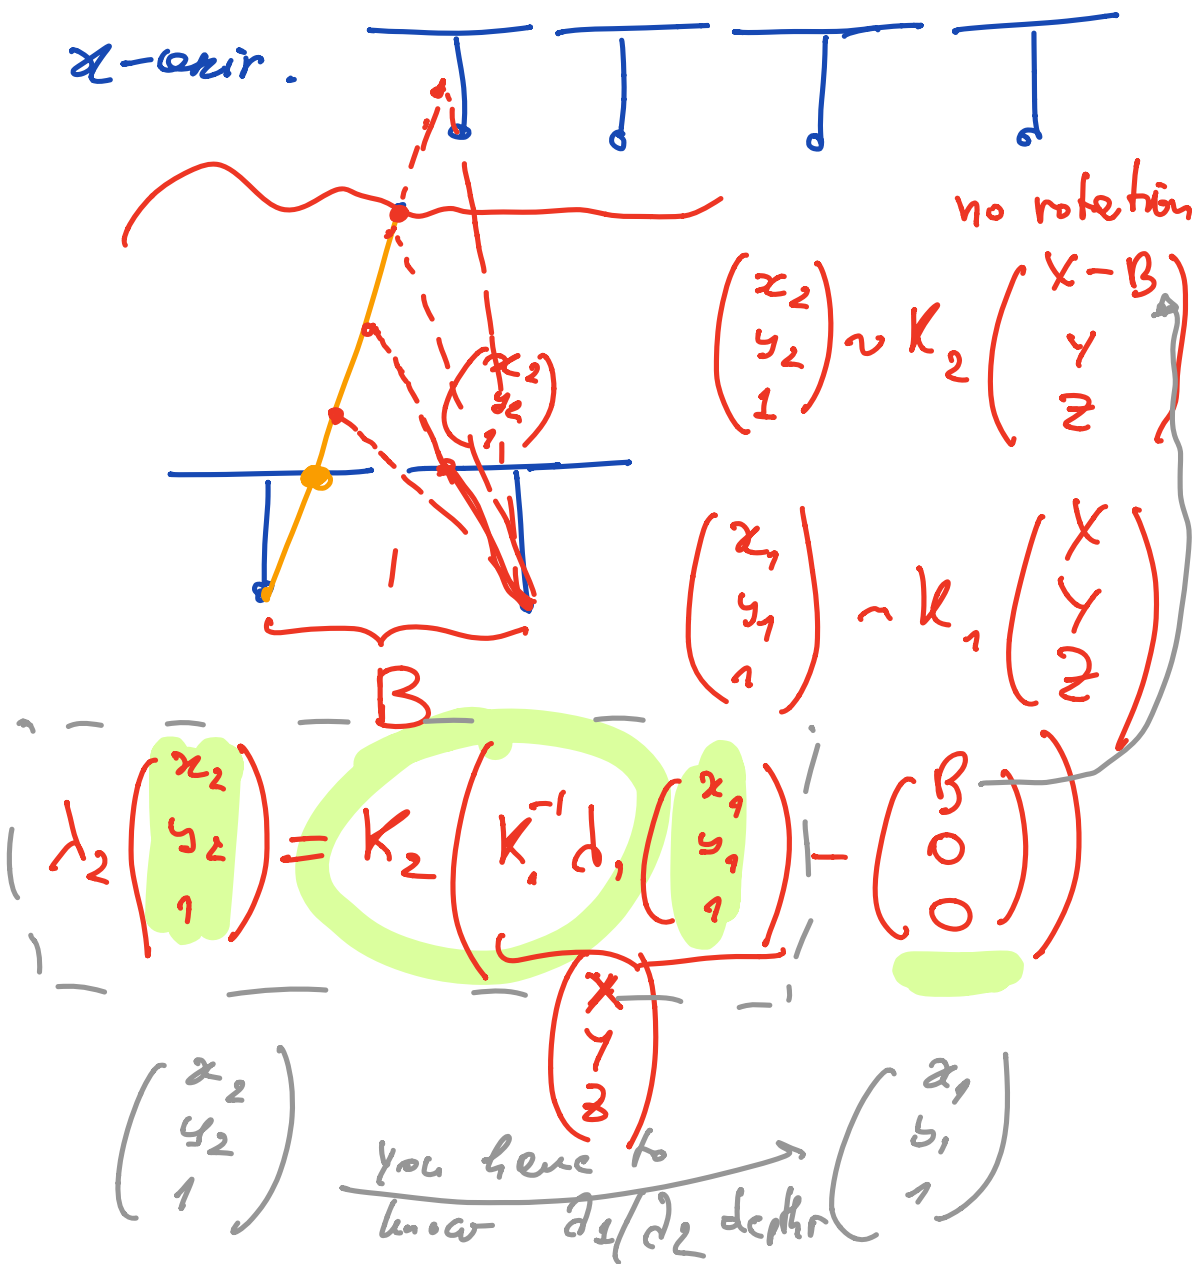 x-axis.
no rotation
(x₂ y₂ 1) ~ K₂ (X-B Y Z)
(x₂ y₂ 1)
(x₁ y₁ 1) ~ K₁ (X Y Z)
B
λ₂ (x₂ y₂ 1) = K₂ (K₁⁻¹ λ₁ (x₁ y₁ 1) - (B 0 0))
(X Y Z)
(x₂ y₂ 1) you have to (x₁ y₁ 1)
know λ1/λ2 depths